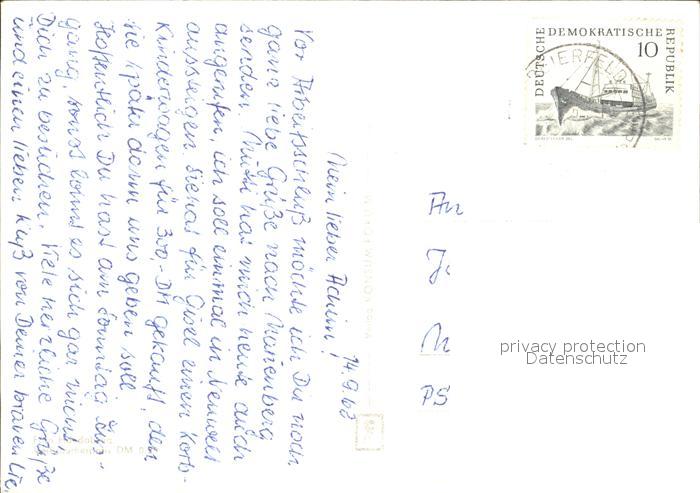 DEUTSCHE DEMOKRATISCHE REPUBLIK
10
BEIERFELD
Mein lieber
14.9.63
Vor Arbeitsschluß möchte ich Dir noch
ganz liebe Grüße nach
senden. Mutti hat mich heute auch
angerufen, ich soll einmal in Neuwelt
aussteigen. Sie hat für Gisel einen Korb-
kinderwagen für 300,-DM gekauft, den
sie später dann uns geben soll
Hoffentlich Du hast am Sonntag Aus-
gang, sonst lohnt es sich gar nicht
Dich zu besuchen. Viele herzliche Grüße
und einen lieben Kuß von Deiner braven
An
J
M
PS
privacy protection
Datenschutz